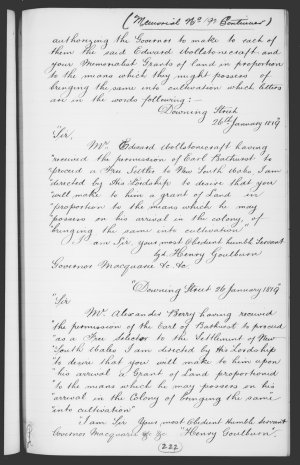 (Memorial No 92 Continued)
authorizing the Governor to make to each of
them the said Edward Wollstonecraft and
your Memorialist Grants of land in proportion
to the means which they might possess of
bringing the same into cultivation which letters
are in the words following:—
Downing Street
26th January 1819
Sir,
Mr. Edward Wollstonecraft having
"received the permission of Earl Bathurst to
"proceed a Free Settler to New South Wales I am
"directed by His Lordship to desire that you
"will make to him a grant of Land in
"proportion to the means which he may
"possess on his arrival in the colony, of
"bringing the same into cultivation"
"I am Sir, your most Obedient humble Servant
gd. Henry Goulburn
Governor Macquarie &c &c
"Downing Street 26 January 1819"
"Sir
Mr. Alexander Berry having received
"the permission of the Earl of Bathurst to proceed
"as a Free Selector to the Settlement of New
"South Wales I am directed by His Lordship
"to desire that you will make to him upon
"his arrival a Grant of Land proportioned
"to the means which he may possess on his
"arrival in the Colony of bringing the same
"into cultivation"
"I am Sir Your most Obedient humble servant
Governor Macquarie &c &c "Henry Goulburn"
(222)